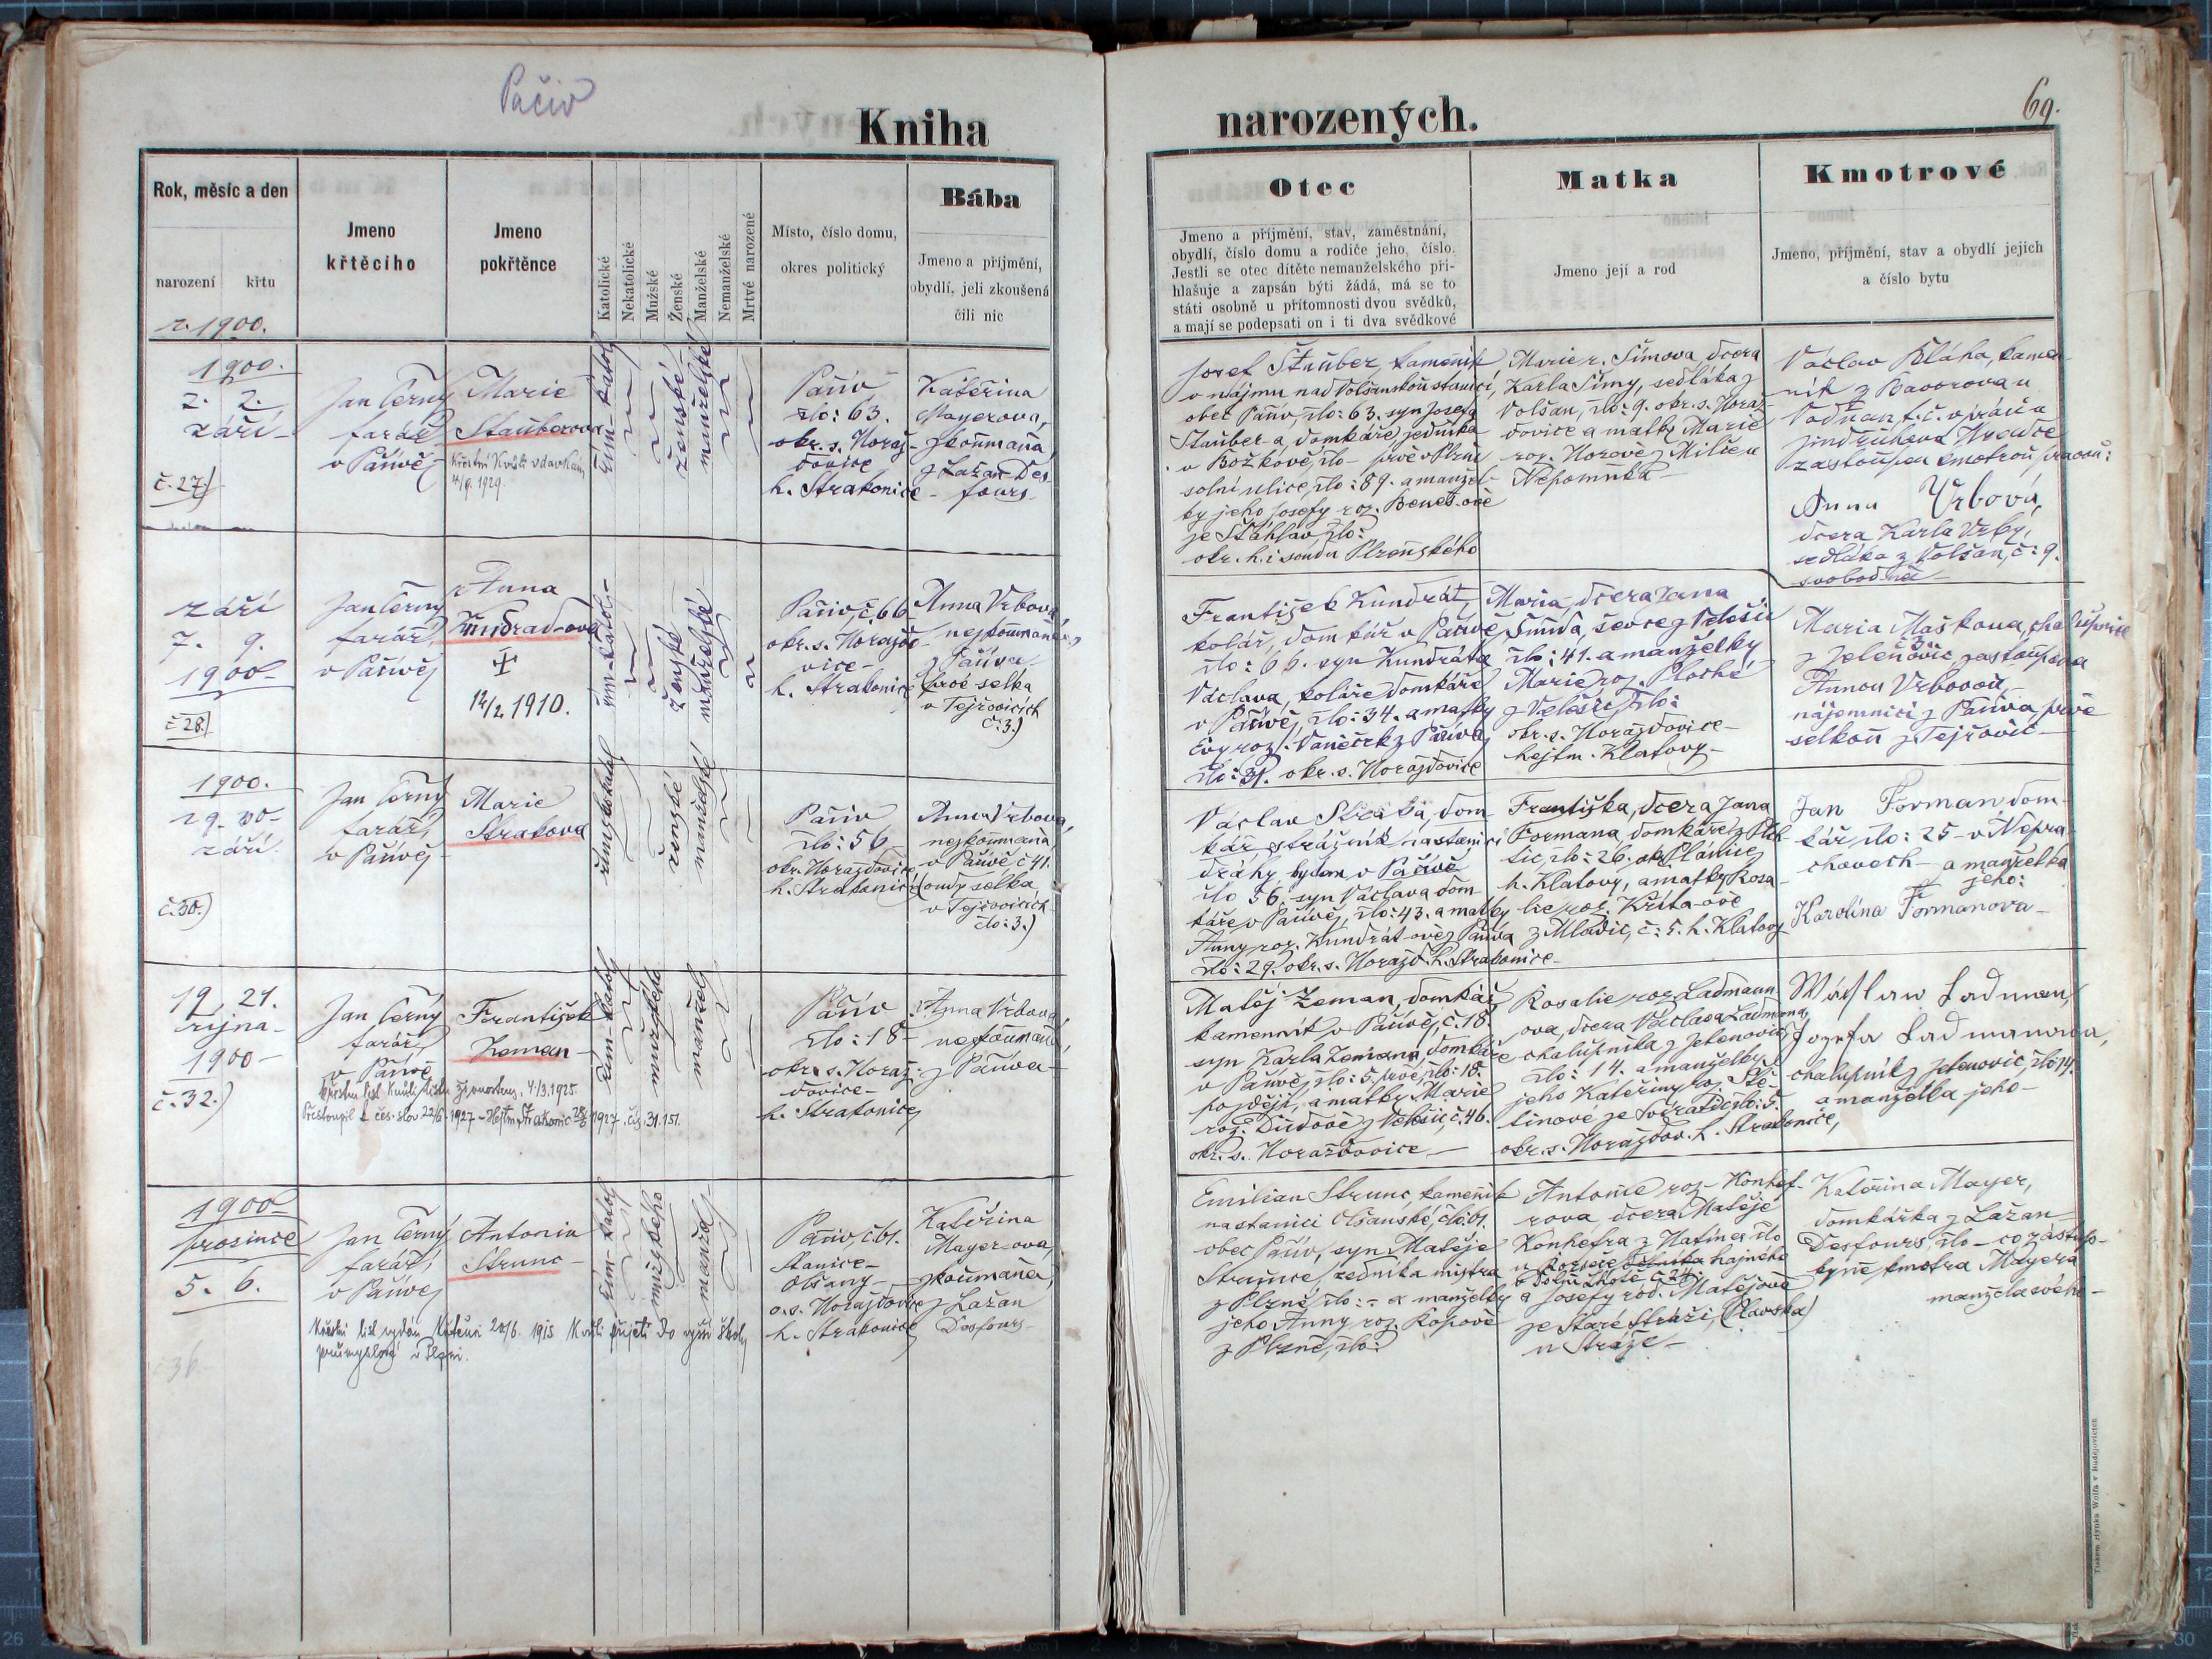 Pačiv
Kniha
narozených.
69.
Rok, měsíc a den
narození křtu
r. 1900.
Jmeno
křtěcího
Jmeno
pokřtěnce
Katolické
Nekatolické
Mužské
Ženské
Manželské
Nemanželské
Mrtvě narozené
Místo, číslo domu,
okres politický
Bába
Jmeno a příjmění,
obydlí, jeli zkoušená
čili nic
Otec
Jmeno a příjmění, stav, zaměstnání,
obydlí, číslo domu a rodiče jeho, číslo.
Jestli se otec dítěte nemanželského při-
hlašuje a zapsán býti žádá, má se to
státi osobně u přítomnosti dvou svědků,
a mají se podepsati on i ti dva svědkové
Matka
Jmeno její a rod
Kmotrové
Jmeno, příjmění, stav a obydlí jejich
a číslo bytu
1900.
2. 2.
září
č. 27.)
Jan Černý
farář
v Pačivě
Marie
Stauberova
Křestní kvůli vdavkám
1929.
řím. katol.
ženské
manželské
Pačiv
člo: 63.
okr. s. Horaž-
ďovice
h. Strakonice
Kateřina
Mayerova,
zkoumaná
z Lažan Des-
fours
Josef Štauber, kameník
v nájmu nad Volšanskou stanicí,
obec Pačiv, člo: 63. syn Josefa
Stauber-a, domkáře, zedníka
v Božkově, člo - prvé v Plzni
solní ulice, člo: 89. a manžel-
ky jeho Josefy roz. Beneš-ové
ze Šťáhlav, člo:
okr. h. i soudu Plzeňského
Marie r. Šímova, dcera
Karla Šímy, sedláka z
Volšan, člo: 9. okr. s. Horaž-
ďovice a matky Marie
roz. Horové z Milče u
Nepomuka
Václav Bláha, kame-
ník z Bavorova u
Vodňan, t. č. v práci u
Jindřichova Hradce
zastoupen kmotrou pravou:
Anna Vrbová,
dcera Karla Vrby,
sedláka z Volšan, č: 9.
svobodná
září
7. 9.
1900
č. 28.)
Jan Černý
farář
v Pačivě
Anna
Kudrad-ova
12/2 1910.
řím-katol-
ženské
manželské
Pačiv, č. 66
okr. s. Horažďo-
vice
h. Strakonice
Anna Vrbova,
nezkoumaná,
z Pačiva
(prvé selka
v Tejřovicích
č. 3.)
František Kundrát,
kolář, domkář v Pačivě,
člo: 66. syn Kundráta
Václava, koláře domkáře
v Pačivě, člo: 34. a matky
Evy roz. Vaněček z Pačiva
člo: 31. okr. s. Horažďovice
Maria, dcera Jana
Šmída, ševce z Velešic
člo: 41. a manželky
Marie roz. Ploché
z Velešic, člo:
okr. s. Horažďovice
hejtm. Klatovy
Maria Maškova, chalupnice
z Jelenovic, zastoupena
Annou Vrbovou,
nájemnicí z Pačiva, prvé
selkou z Tejřovic
1900.
29. 30.
září.
č. 30.)
Jan Černý
farář,
v Pačivě
Marie
Strakova
římskokatol
ženské
manželské
Pačiv
člo: 56
okr. Horažďovice,
h. Strakonice
Anna Vrbova,
nezkoumaná,
v Pačivě č. 41.
(ondy selka
v Tejřovicích
člo: 3.)
Václav Straka, dom-
kář, strážník na stanici
dráhy, bytem v Pačivě
člo 56. syn Václava dom-
káře v Pačivě, člo: 43. a matky
Anny roz. Kundrát-ové z Pačiva
člo: 29. okr. s. Horažď. h. Strakonice
Františka, dcera Jana
Formana, domkáře z
člo: 26. ok. Plánice,
h. Klatovy, a matky Rosa-
lie roz. Kříta-ové
z Mladic, č: 5. h. Klatovy
Jan Forman dom-
kář, člo: 25 v Nepra-
chovech a manželka
jeho:
Karolina Formanova
19. 21.
října
1900
č. 32.)
Jan Černý
farář
v Pačivě
František
Zeman
Křestní list kvůli živnosten. 4/3. 1925.
Přestoupil k čes.-slov. 22/6 1927 - Hejtm. Strakonice 28/6 1927. čís. 31.151.
řím-katol
mužského
manžel
Pačiv
člo: 18
okr. s. Horaž-
ďovice
h. Strakonice
Anna Vrbova,
nezkoumaná,
z Pačiva
Matěj Zeman, domkář
kamenník v Pačivě, č. 18.
syn Karla Zemana, domkáře
v Pačivě, člo: 5. prvé, člo: 18.
později, a matky Marie
roz. Dudové z Velešic, č. 46.
okr. s. Horažďovice
Rosalie roz. Ladmann
ova, dcera Václava Ladmana,
chalupníka z Jelenovic,
člo: 14. a manželky
jeho Kateřiny roz. Ště-
tinové ze Svéradic člo: 5.
okr. s. Horažďov. h. Strakonice,
Wáclaw Ladman,
Jozefa Ladmanowa,
chalupník z Jelenovic, člo 14.
a manželka jeho
1900
prosince
5. 6.
č 36
Jan Černý
farář,
v Pačivě
Antonín
Strunc
Křestní list vydán 24/6. 1915 kvůli přijetí do vyšší školy
průmyslové v Plzni.
řím-katol
mužského
manžel
Pačiv, č. 61.
Stanice
Olšany
o. s. Horažďovice
h. Strakonice
Kateřina
Mayer-ova,
zkoumaná,
z Lažan
Desfours
Emilian Strunc, kameník
na stanici Olšanské, člo: 61.
obec Pačiv, syn Matěje
Strunce, zedníka mistra
z Plzně, člo: - a manželky
jeho Anny roz. Kopové
z Plzně, člo:
Antonie roz. Konhef-
rova, dcera Matěje
Konhefra z Matína člo
hajného
v Dolní Lhotě č. 24.
a Josefy rod. Matějové
ze Staré Stráži, (Plavska)
u Stráže
Kateřina Mayer,
domkářka z Lažan
Desfours, člo - co zástup-
kyně, kmotra Mayera
manžela svého
Tiskem rytynka Wolfa v Budějovicích